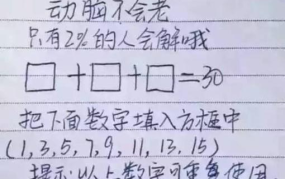 动脑不会老
只有2%的人会解哦
□+□+□=30
把下面数字填入方框中
(1,3,5,7,9,11,13.15)
提示:以上数字可重复使用